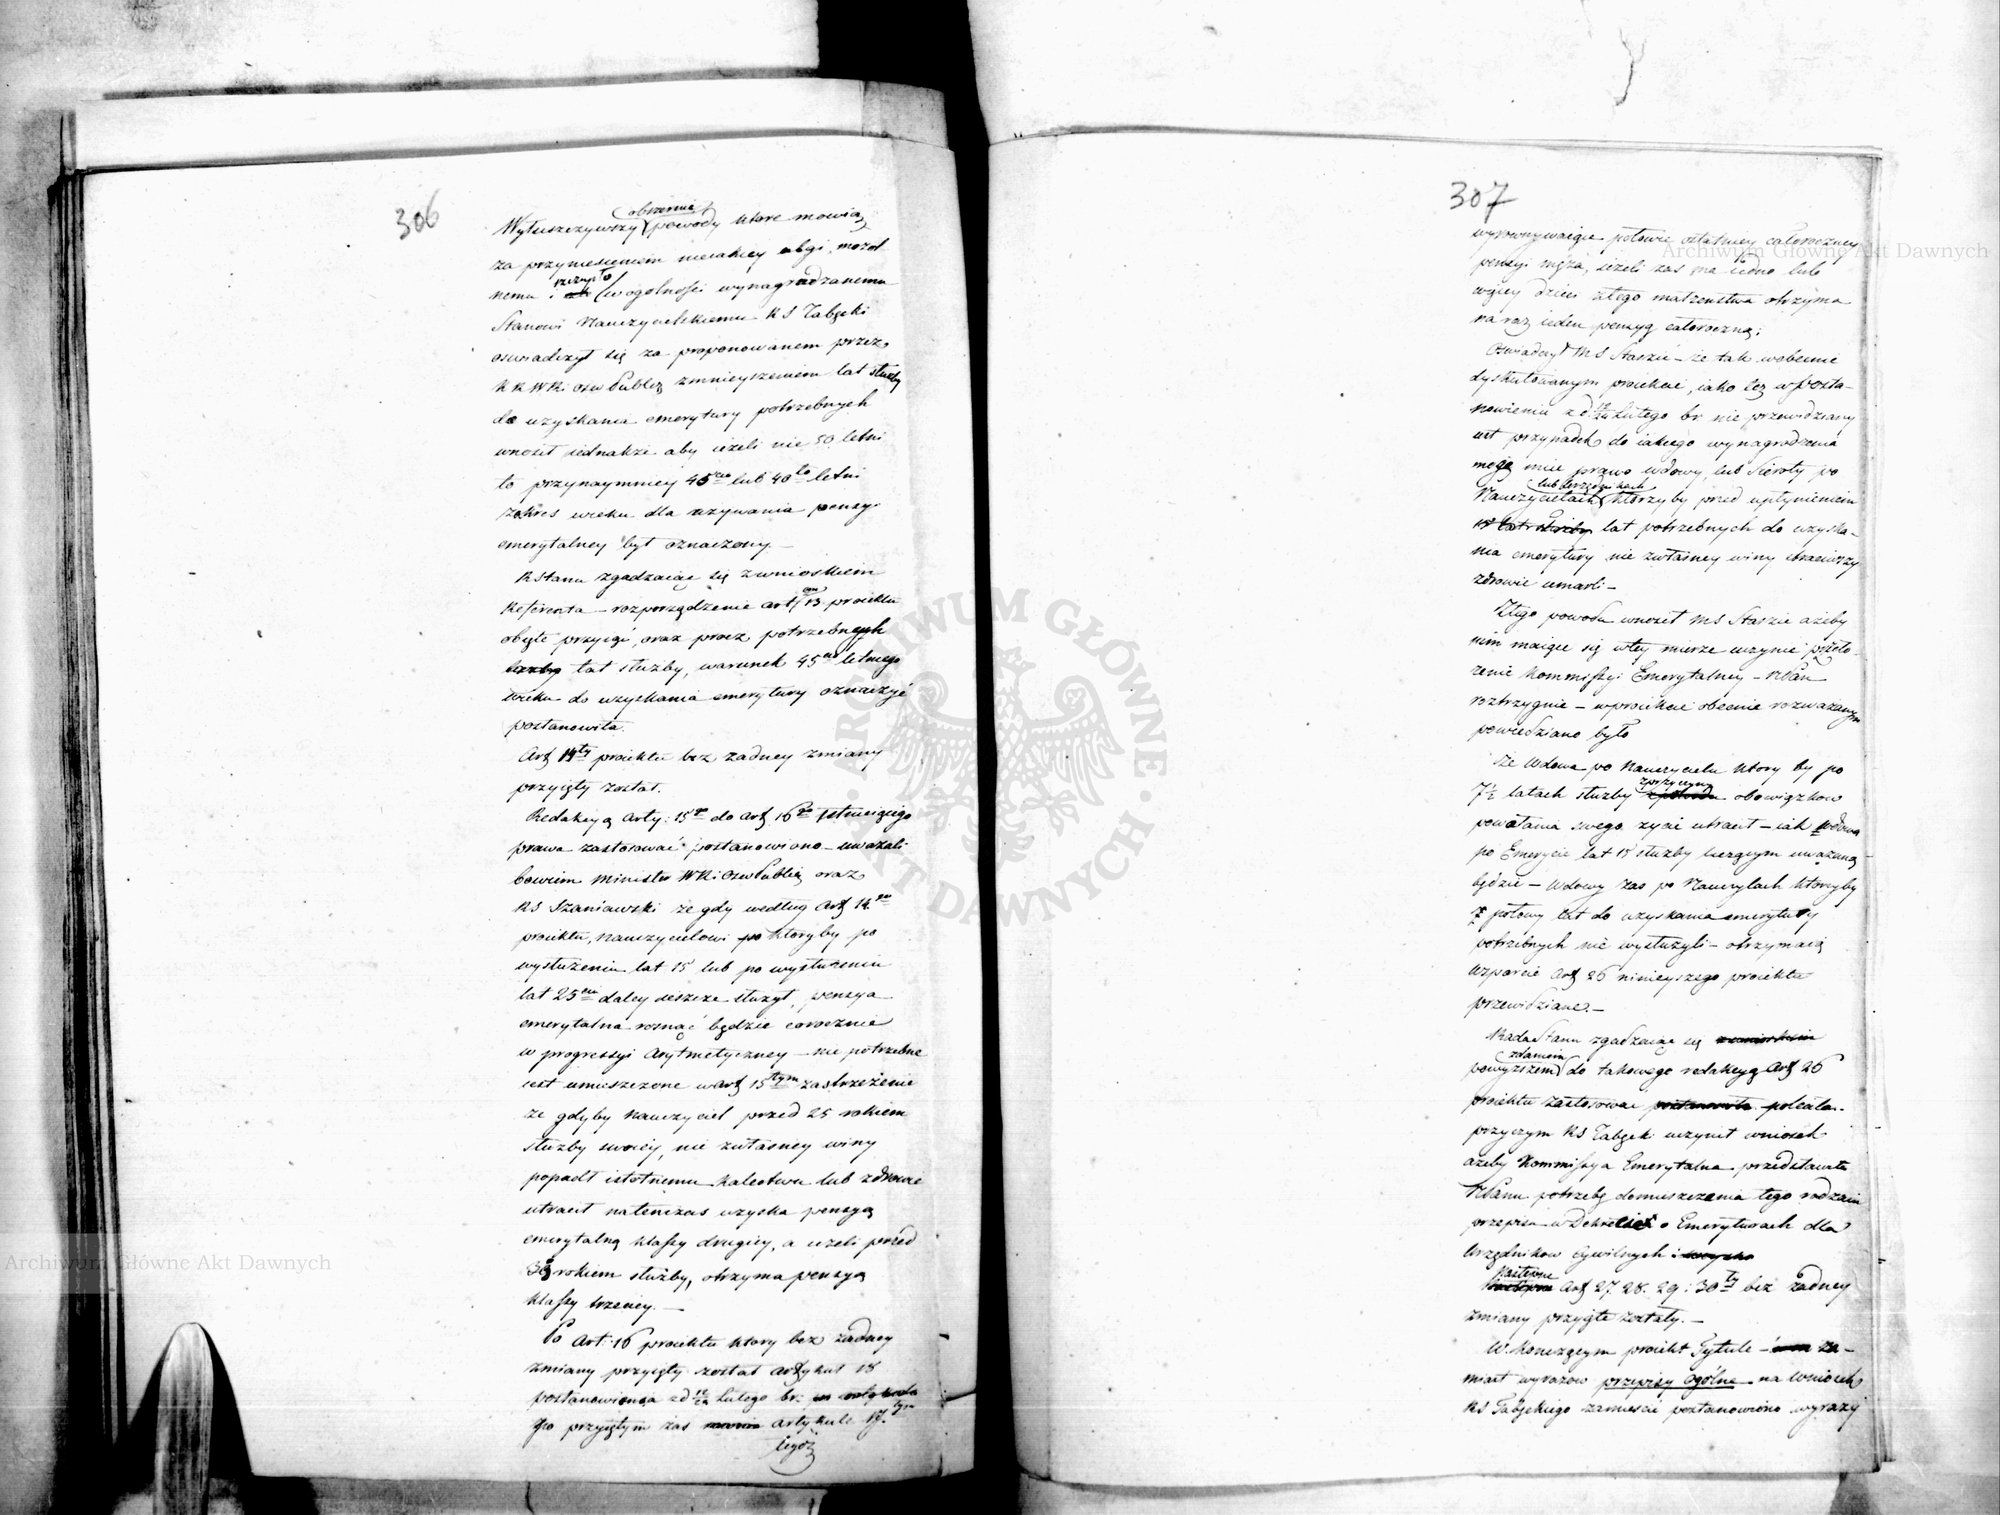 306
obszernie
Wyłuszczywszy powody ktore mowią
za przyniesieniem nieiakiey ulgi, mozol
nemu i szczupło w ogolności wynagradzanemu
Stanowi Nauczycielskiemu RS Tabęcki
oswiadczył się za proponowanem przez
KRWRi Osw Publicz zmnieyszeniem lat służby
do uzyskania emerytury potrzebnych
wnosił iednakże aby ieżeli nie 50 letni
to przynaymniey 45cio lub 40to letni
zakres wieku dla uzywania pensyi
emerytalney był oznaczony. —
R Stanu zgadzaiąc się z wnioskiem
Referenta – rozporządzenie art 13 proiektu
obięte przyiąć, oraz procz potrzebnych
liczby lat służby, warunek 45cio letniego
wieku do uzyskania emerytury oznaczyć
postanowiła.
Art 14ty proiektu bez żadney zmiany
przyięty został.
Redakcyą Arty: 15go do Art 16go istnieiącego
prawa zastosować postanowiono – uważali
bowiem Minister WRi Osw Public oraz
RS Szaniawski że gdy według Art 14go
proiektu, Nauczycielowi po ktoryby po
wysłużeniu lat 15 lub po wysłużeniu
lat 25ciu daley ieszcze służył, pensya
emerytalna rosnąć będzie corocznie
w progressyi Arytmetyczney – nie potrzebne
iest umieszczone w Art 15tym zastrzeżenie
że gdyby Nauczyciel przed 25 rokiem
służby swoiey, nie z własney winy
popadł istotnemu kalectwu lub zdrowie
utracił natenczas uzyska pensyą
emerytalną klassy drugiey, a ieżeli przed
30 rokiem służby, otrzyma pensyą
klassy trzeciey. —
Po Art: 16 proiektu ktory bez żadney
zmiany przyięty został Artykuł 18
postanowienia z d 12/24 Lutego br.
przyiętym zas artykule 17tym
iegoż
307
wyrownywaiące połowie ostatniey całoroczney
pensyi męża, ieżeli zas ma iedno lub
więcey dzieci z tego małżenstwa otrzyma
na raz ieden pensyą całoroczną;
Oswiadczył MS Staszic – że tak w obecnie
dyskutowanym proiekcie, iako też w posta-
nowieniu z d. 12/24 Lutego br nie przewidziany
iest przypadek do iakiego wynagrodzenia
mogą miec prawo wdowy, lub Sieroty po
lub Urzędnikach
Nauczycielach ktorzyby przed upłynieniem
15 lat służby lat potrzebnych do uzyska-
nia emerytury nie z własney winy straciwszy
zdrowie umarli –
Z tego powodu wnosił MS Staszic ażeby
nim maiące się w tey mierze uczynic przeło-
żenie Kommissyi Emerytalney – RStanu
roztrzygnie – w proiekcie obecnie rozważanym
powiedziano było
że Wdowa po Nauczycielu ktory by po
7½ latach służby z przyczyny obowiązkow
powołania swego życie utracił – iak wdowa
po Emerycie lat 15 służby liczącym uważaną
będzie – Wdowy zas po Nauczylach ktorzyby
połowy lat do uzyskania emerytury
potrzebnych nie wysłużyli – otrzymaią
wzparcie Art 26 ninieyszego proiektu
przewidziane. —
Rada Stanu zgadzaiąc się z wnioskiem
zdaniem
powyższem do takowego redakcyą Art 26
proiektu zastosować postanowiła poleciła.
przyczym RS Tabęck uczynił wniosek
ażeby Kommissya Emerytalna przedstawiła
RStanu potrzebę domieszczenia tego rodzaiu
przepisu w Dekrecie o Emeryturach dla
Urzędnikow Cywilnych
Następne
Następne Art 27. 28. 29 i 30ty bez żadney
zmiany przyięte zostały. —
W kończącym proiekt Tytule – za-
miast wyrazow przepisy ogólne na wniosek
RS Tabęckiego zamieścić postanowiono wyrazy
Archiwum Główne Akt Dawnych
ARCHIWUM GŁÓWNE AKT DAWNYCH
Archiwum Główne Akt Dawnych